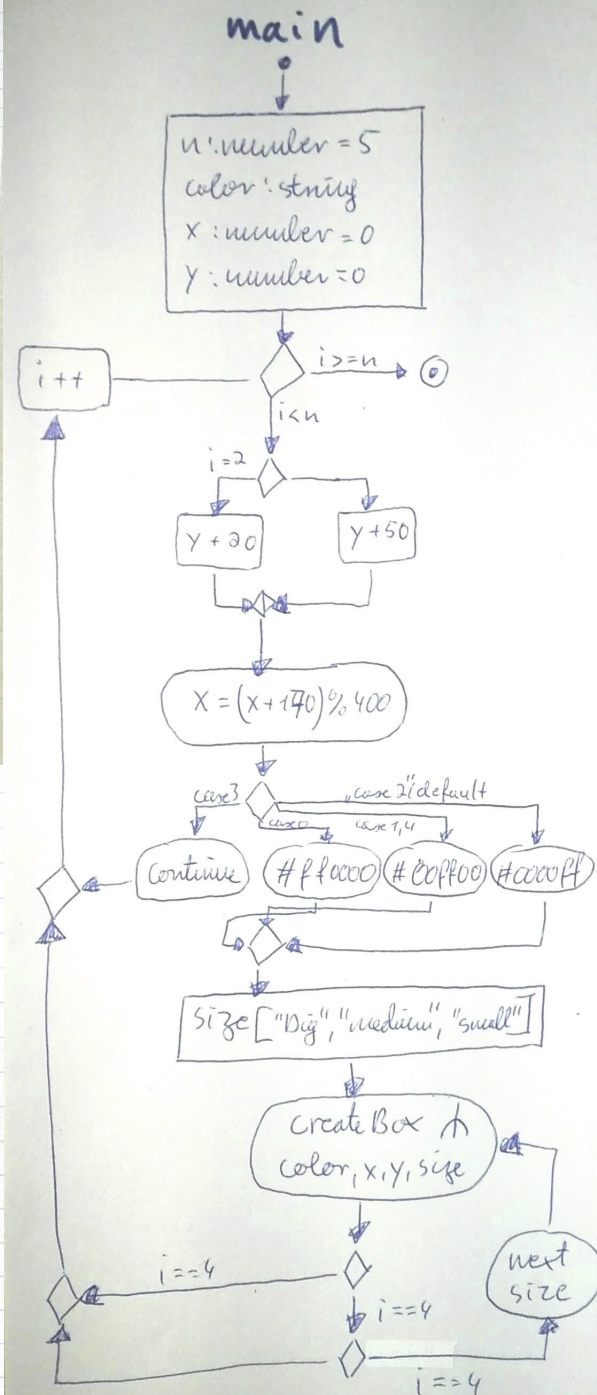 main
n:number = 5
color:string
x:number=0
y:number=0
i++
i>=n
i<n
i=2
y+20
y+50
x=(x+170)%400
case3
case0
case 1,4
"case 2"idefault
Continue
#ff0000
#00ff00
#0000ff
size["Big","medium","small"]
createBox
color,x,y,size
next
size
i==4
i==4
i==4